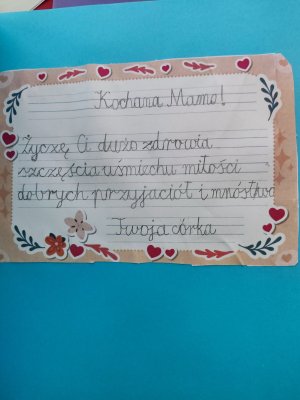 Kochana Mamo!
Życzę Ci dużo zdrowia
szczęścia uśmiechu miłości
dobrych przyjaciół i mnóstwo
Twoja córka